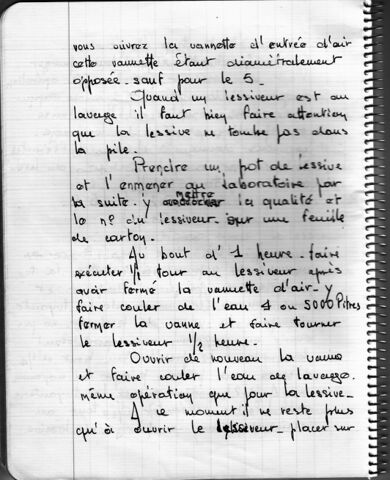 vous ouvrez la vannette d'entrée d'air
cette vannette étant diamétralement
opposée. sauf pour le 5.
Quand un lessiveur est au
lavage il faut bien faire attention
que la lessive ne tombe pas dans
la pile.
Prendre un pot de lessive
et l'enmener au laboratoire par
la suite. y mettre la qualité et
le n° du lessiveur sur une feuille
de carton.
Au bout d'1 heure. faire
exécuter 1/2 tour au lessiveur après
avoir fermé la vannette d'air. y
faire couler de l'eau 4 ou 5000 litres
fermer la vanne et faire tourner
le lessiveur 1/2 heure.
Ouvrir de nouveau la vanne
et faire couler l'eau de lavage.
même opération que pour la lessive.
A ce moment il ne reste plus
qu'à ouvrir le lessiveur. placer sur